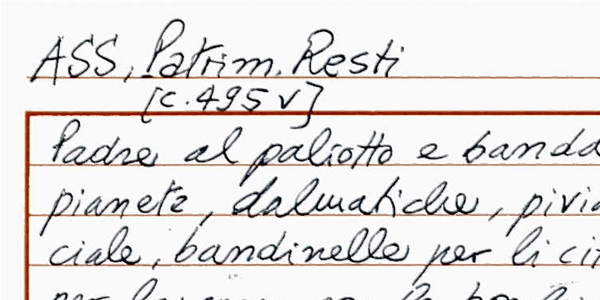 ASS, Patrim. Resti
[c. 495 v]
Padre al paliotto e banda
pianeta, dalmatiche, pivia
ciale, bandinelle per li ci
per